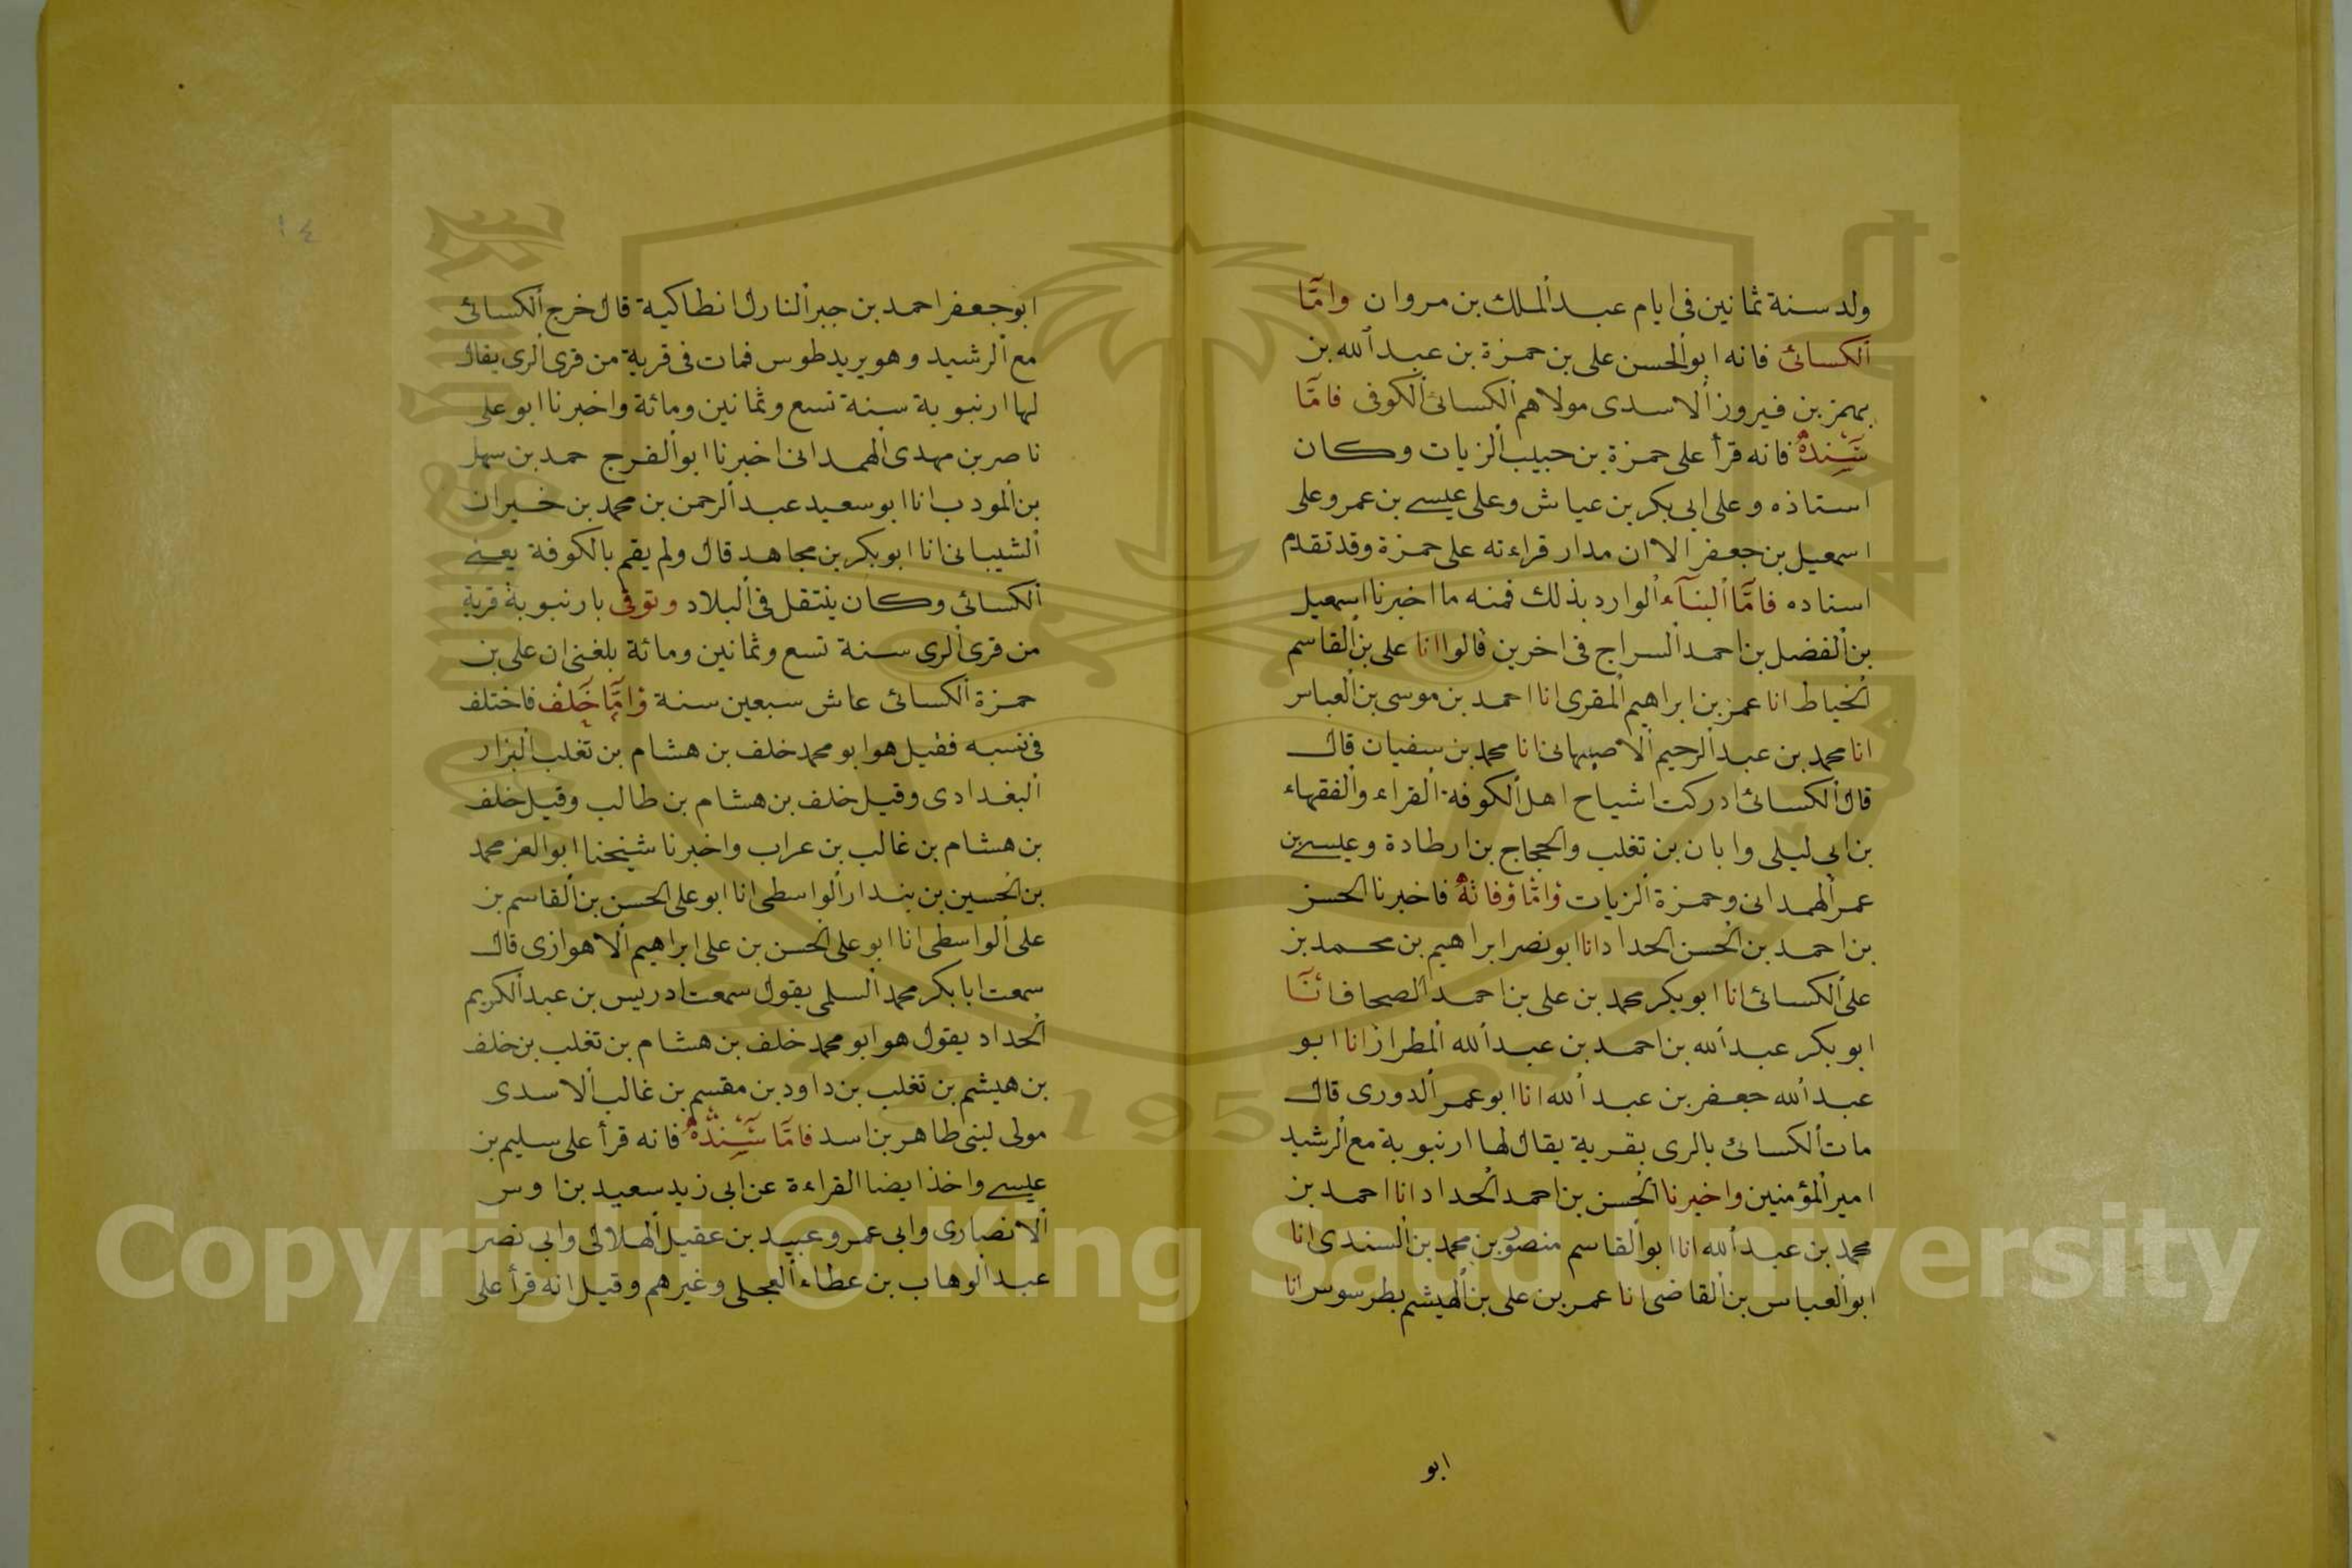 ولد سنة ثمانين فى ايام عبد الملك بن مروان وامّا
الكسائى فانه ابو الحسن على بن حمزة بن عبد الله بن
بهمز بن فيروز الاسدى مولاهم الكسائى الكوفى فامّا
سَنَدُهُ فانه قرأ على حمزة بن حبيب الزيات وكان
استاذه وعلى ابى بكر بن عياش وعلى عيسى بن عمر وعلى
اسمعيل بن جعفر الا ان مدار قراءته على حمزة وقد تقدم
اسناده فامّا النبآء الوارد بذلك فمنه ما اخبرنا اسمعيل
بن الفضل بن احمد السراج فى اخرين قالوا انا على بن القاسم
الخياط انا عمر بن ابراهيم المقرى انا احمد بن موسى بن العباس
انا محمد بن عبد الرحيم الاصبهانى انا محمد بن سفيان قال
قال الكسائى ادركت اشياخ اهل الكوفة القراء والفقهاء
بن ابى ليلى وابان بن تغلب والحجاج بن ارطادة وعيسى بن
عمر الهمدانى وحمزة الزيات وامّا وفاتهُ فاخبرنا الحسن
بن احمد بن الحسن الحداد انا ابو نصر ابراهيم بن محمد بن
على الكسائى انا ابو بكر محمد بن على بن احمد الصحاف انّا
ابو بكر عبد الله بن احمد بن عبد الله المطراز انا ابو
عبد الله جعفر بن عبد الله انا ابو عمر الدورى قال
مات الكسائى بالرى بقرية يقال لها ارنبوية مع الرشيد
امير المؤمنين واخبرنا الحسن بن احمد الحداد انا احمد بن
محمد بن عبد الله انا ابو القاسم منصور بن محمد بن السندى انا
ابو العباس بن القاضى انا عمر بن على بن الهيشم بطرسوس انا
ابو
١٤
ابو جعفر احمد بن جبر النازل انطاكية قال خرج الكسائى
مع الرشيد وهو يريد طوس فمات فى قرية من قرى الرى يقال
لها ارنبوية سنة تسع وثمانين ومائة واخبرنا ابو على
ناصر بن مهدى الهمدانى اخبرنا ابو الفرج حمد بن سهل
بن المودب انا ابو سعيد عبد الرحمن بن محمد بن خيران
الشيبانى انا ابو بكر بن مجاهد قال ولم يقم بالكوفة يعنى
الكسائى وكان ينتقل فى البلاد وتوفى بارنبوية قرية
من قرى الرى سنة تسع وثمانين ومائة بلغنى ان على بن
حمزة الكسائى عاش سبعين سنة وَامَّا خَلَف فاختلف
فى نسبه فقيل هو ابو محمد خلف بن هشام بن تغلب البزار
البغدادى وقيل خلف بن هشام بن طالب وقيل خلف
بن هشام بن غالب بن عراب واخبرنا شيخنا ابو العز محمد
بن الحسين بن بندار الواسطى انا ابو على الحسن بن القاسم بن
على الواسطى انا ابو على الحسن بن على ابراهيم الاهوازى قال
سمعت ابا بكر محمد السلمى يقول سمعت ادريس بن عبد الكريم
الحداد يقول هو ابو محمد خلف بن هشام بن تغلب بن خلف
بن هيشم بن تغلب بن داود بن مقسم بن غالب الاسدى
مولى لبنى طاهر بن اسد فامّا سَنَدُهُ فانه قرأ على سليم بن
عيسى واخذ ايضا القراءة عن ابى زيد سعيد بن اوس
الانصارى وابى عمرو عبيد بن عقيل الهلالى وابى نصر
عبد الوهاب بن عطاء العجلى وغيرهم وقيل انه قرأ على
Copyright © King Saud University
1957